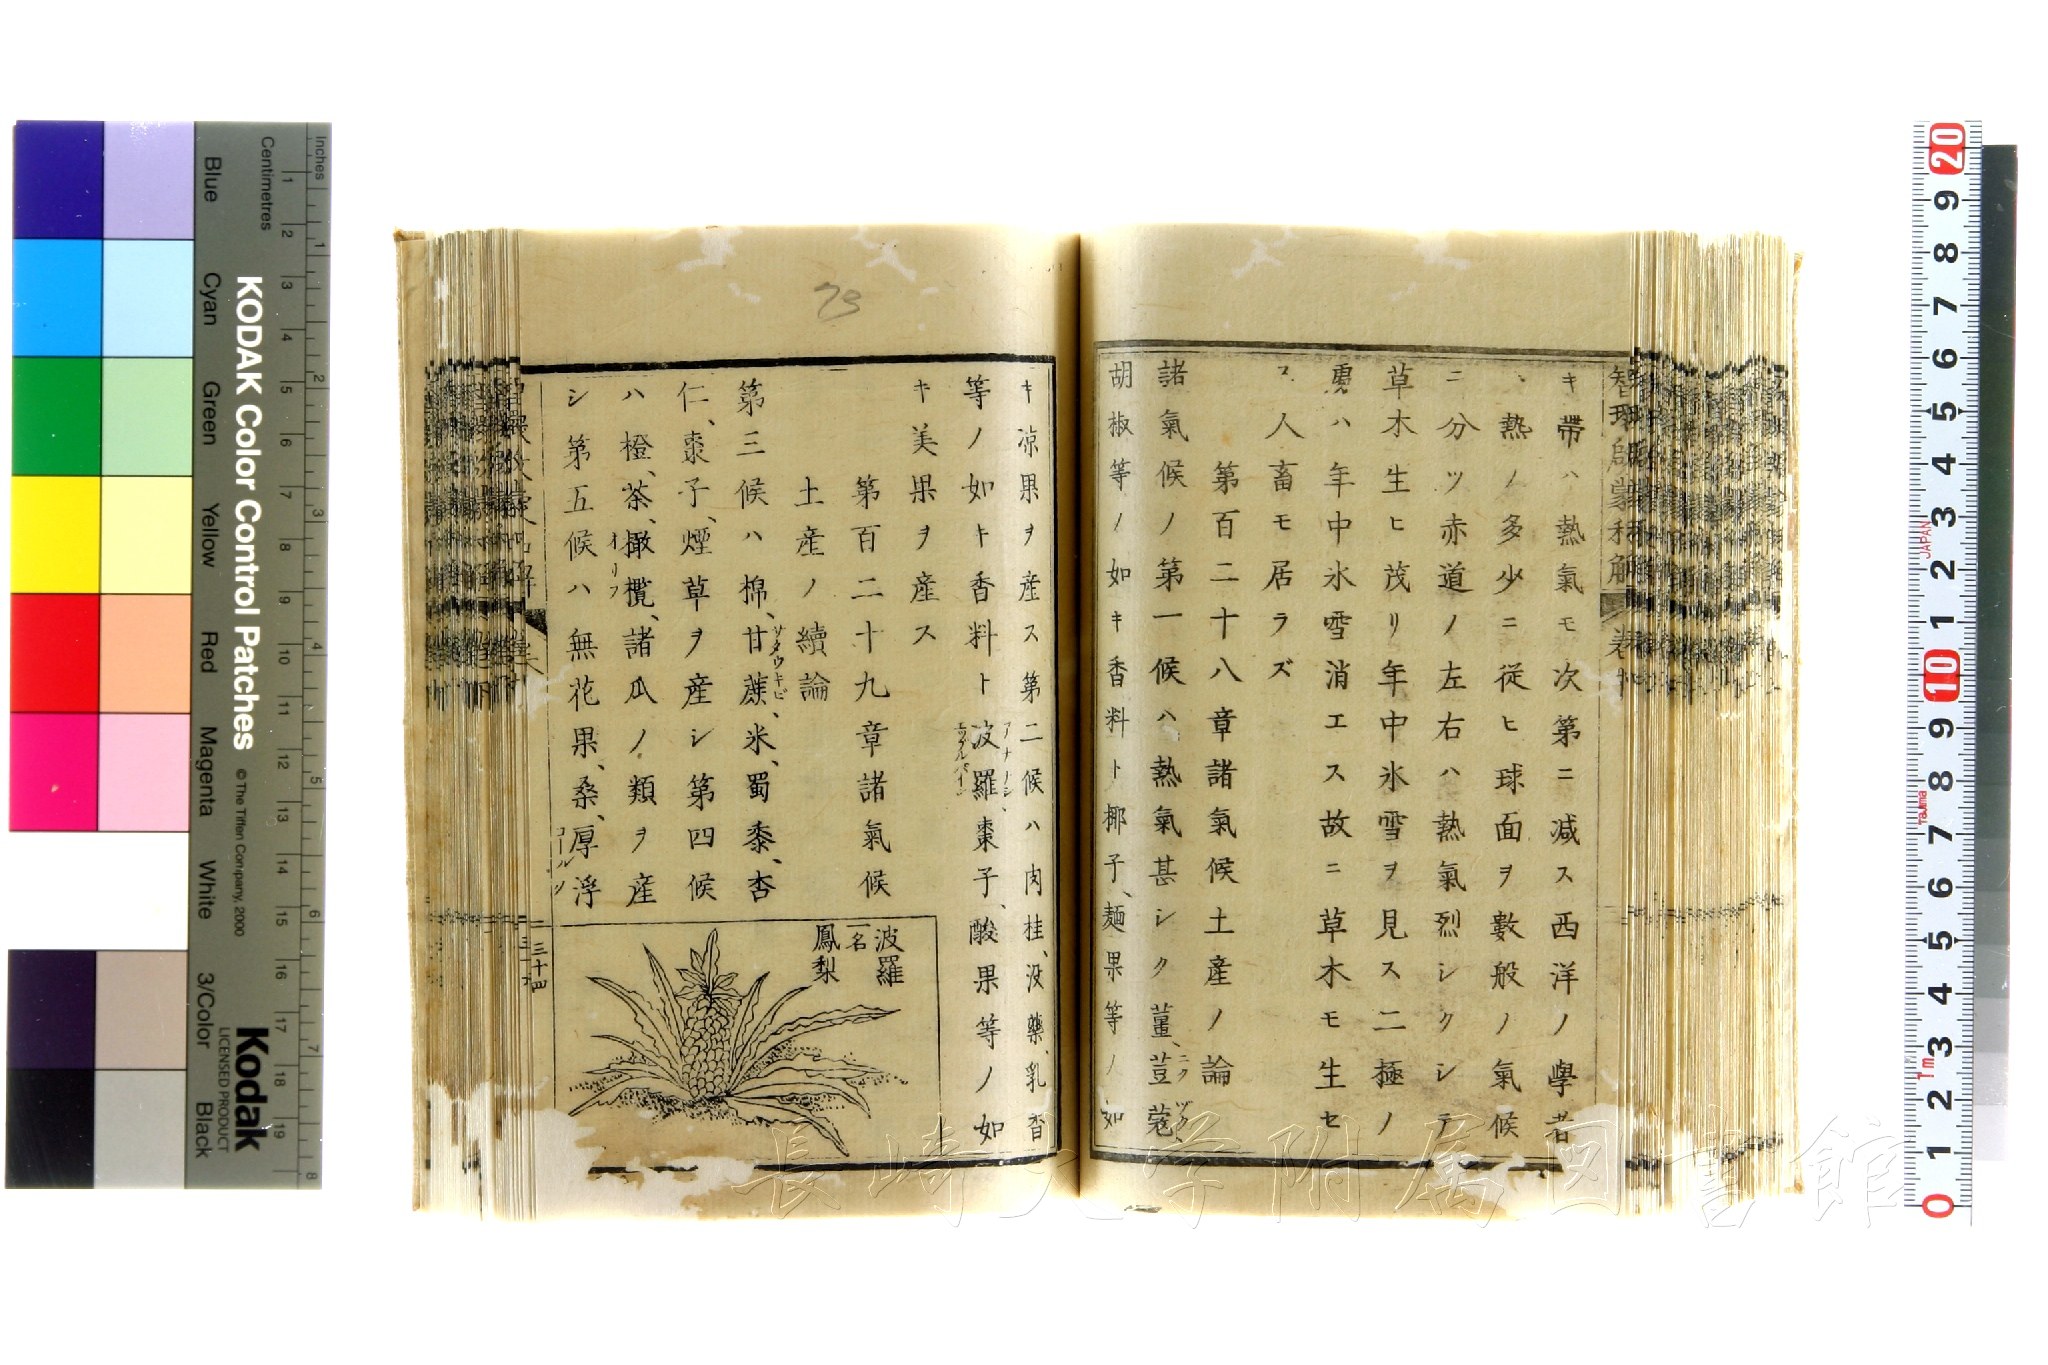 智環啟蒙和解
卷下
キ帶ハ熱氣モ次第ニ減ス西洋ノ學者
熱ノ多少ニ從ヒ球面ヲ數般ノ氣候
ニ分ツ赤道ノ左右ハ熱氣烈シクシテ
草木生ヒ茂リ年中氷雪ヲ見ス二極ノ
處ハ年中氷雪消エス故ニ草木モ生セ
ス人畜モ居ラズ
第百二十八章諸氣候土產ノ論
諸氣候ノ第一候ハ熱氣甚シク薑、荳蔲
胡椒等ノ如キ香料ト椰子、麺果等ノ如
キ凉果ヲ産ス第二候ハ肉桂、没藥、乳香
等ノ如キ香料ト波羅棗子、酸果等ノ如
キ美果ヲ産ス
第百二十九章諸氣候
土産ノ續論
第三候ハ棉、甘蔗、米、蜀黍、杏
サタウキビ
仁、棗子、煙草ヲ産シ第四候
ハ橙、茶、橄欖、諸瓜ノ類ヲ産
オリフ
シ第五候ハ無花果、桑、厚浮
コールツ
波羅
一名
鳳梨
三十四
73
長崎大学附属図書館
KODAK Color Control Patches
© The Tiffen Company, 2000
Kodak
LICENSED PRODUCT
Inches
Centimetres
1 2 3 4 5 6 7 8
1 2 3 4 5 6 7 8 9 10 11 12 13 14 15 16 17 18 19
Blue
Cyan
Green
Yellow
Red
Magenta
White
3/Color
Black
20 9 8 7 6 5 4 3 2 1 10 9 8 7 6 5 4 3 2 1 0
JAPAN
Tajima
1m